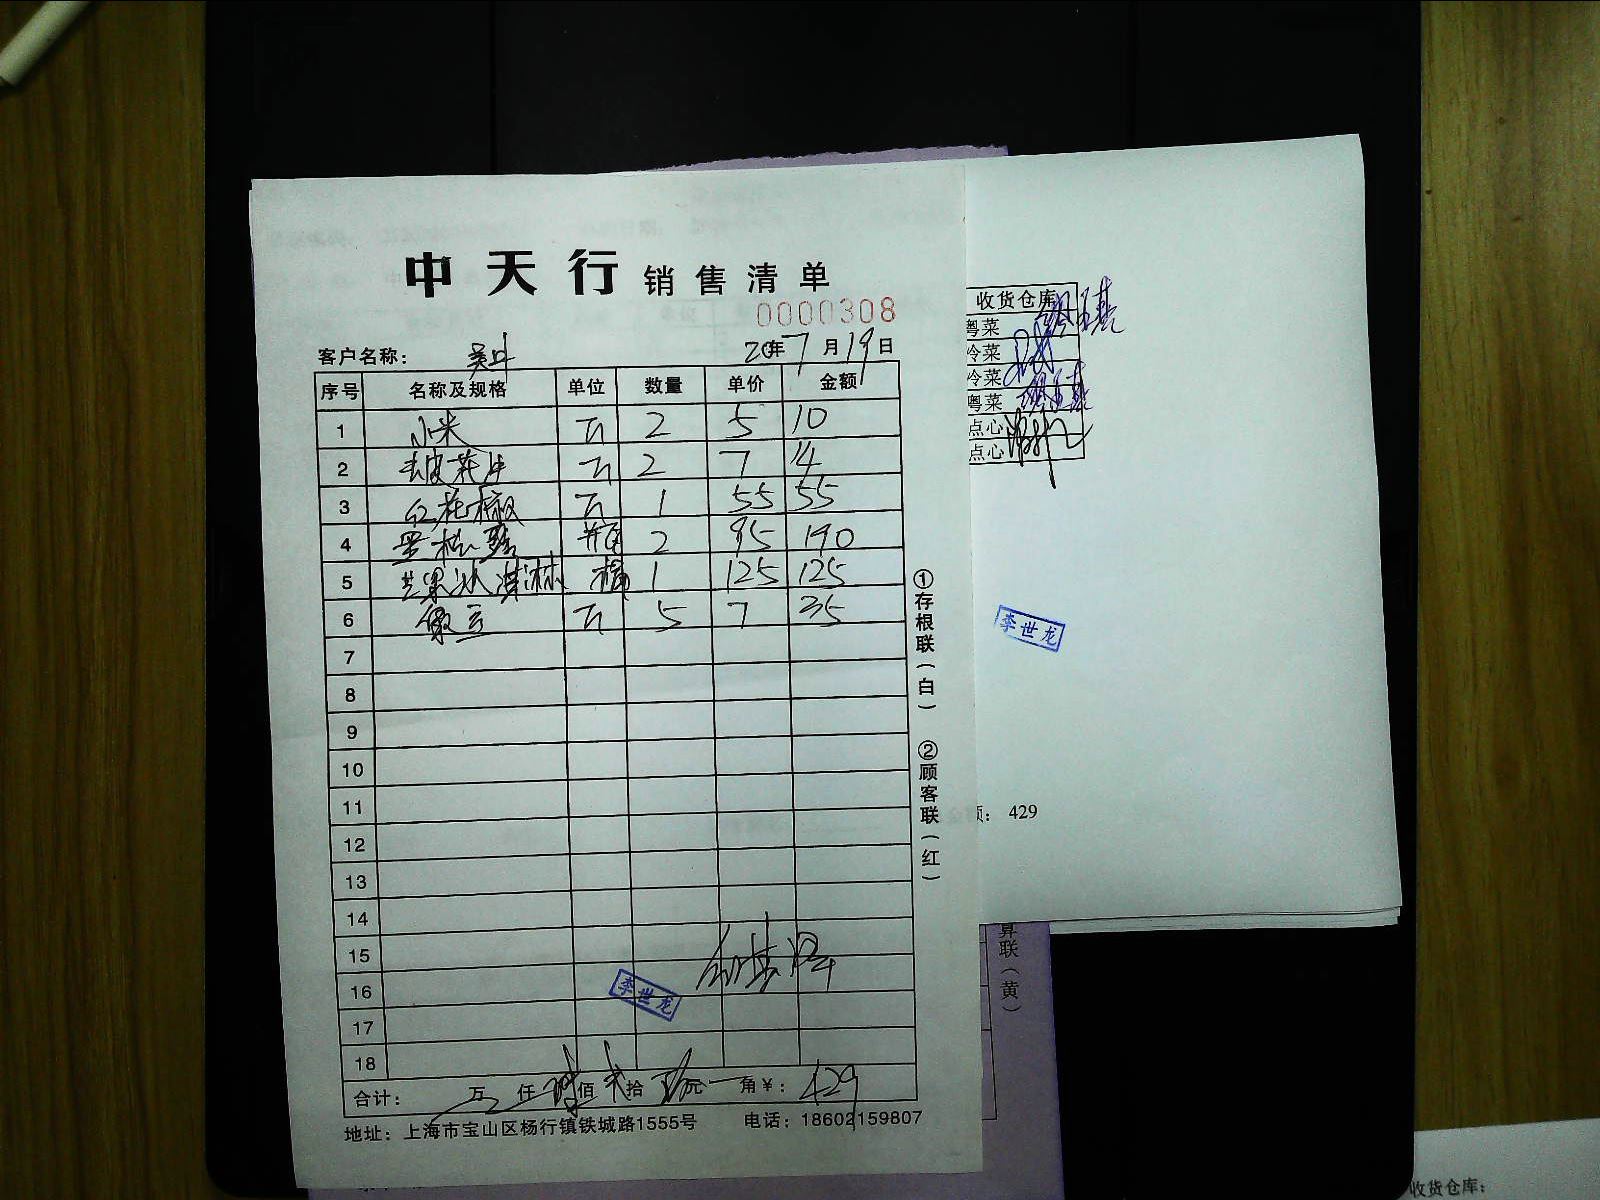 中天行 销售清单
0000308
客户名称： 20年7月19日
序号 名称及规格 单位 数量 单价 金额
1 小米 斤 2 5 10
2 去皮花生 斤 2 7 14
3 红花椒 斤 1 55 55
4 黑松露 瓶 2 95 190
5 芒果冰淇淋 桶 1 125 125
6 斤 5 7 35
7
8
9
10
11
12
13
14
15
16
17
18
李世龙
合计： 万 仟 肆佰 贰拾 玖元 角￥： 429
地址：上海市宝山区杨行镇铁城路1555号 电话：18602159807
①存根联（白） ②顾客联（红）
收货仓库
粤菜
冷菜
冷菜
粤菜
点心
点心
李世龙
额： 429
算联（黄）
收货仓库：